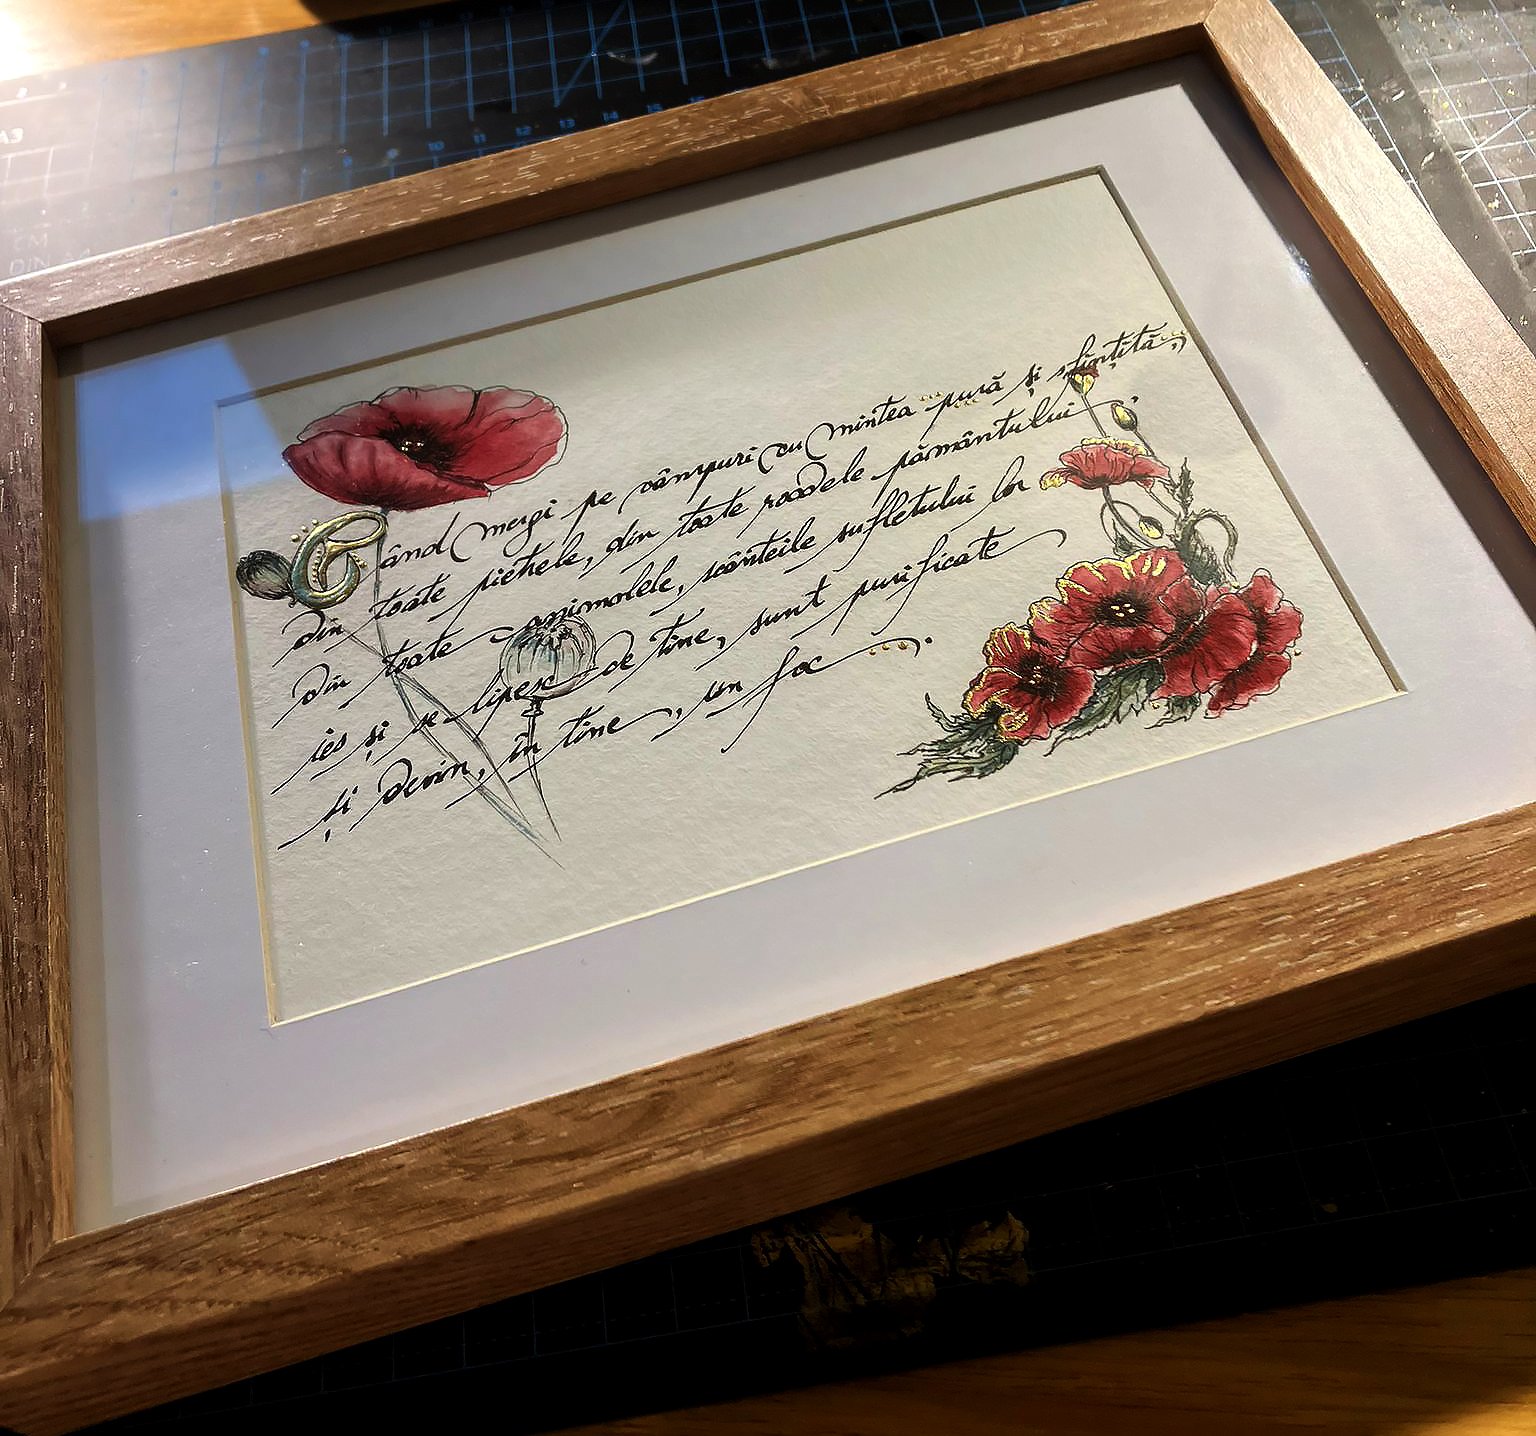 Când mergi pe câmpuri cu mintea pură și sfințită,
din toate pietrele, din toate roadele pământului
din toate animalele, scânteile sufletului lor
ies și se lipesc de tine, sunt purificate
și devin, în tine, un foc.
A3
CM
DIN
9 10 11 12 13 14 15